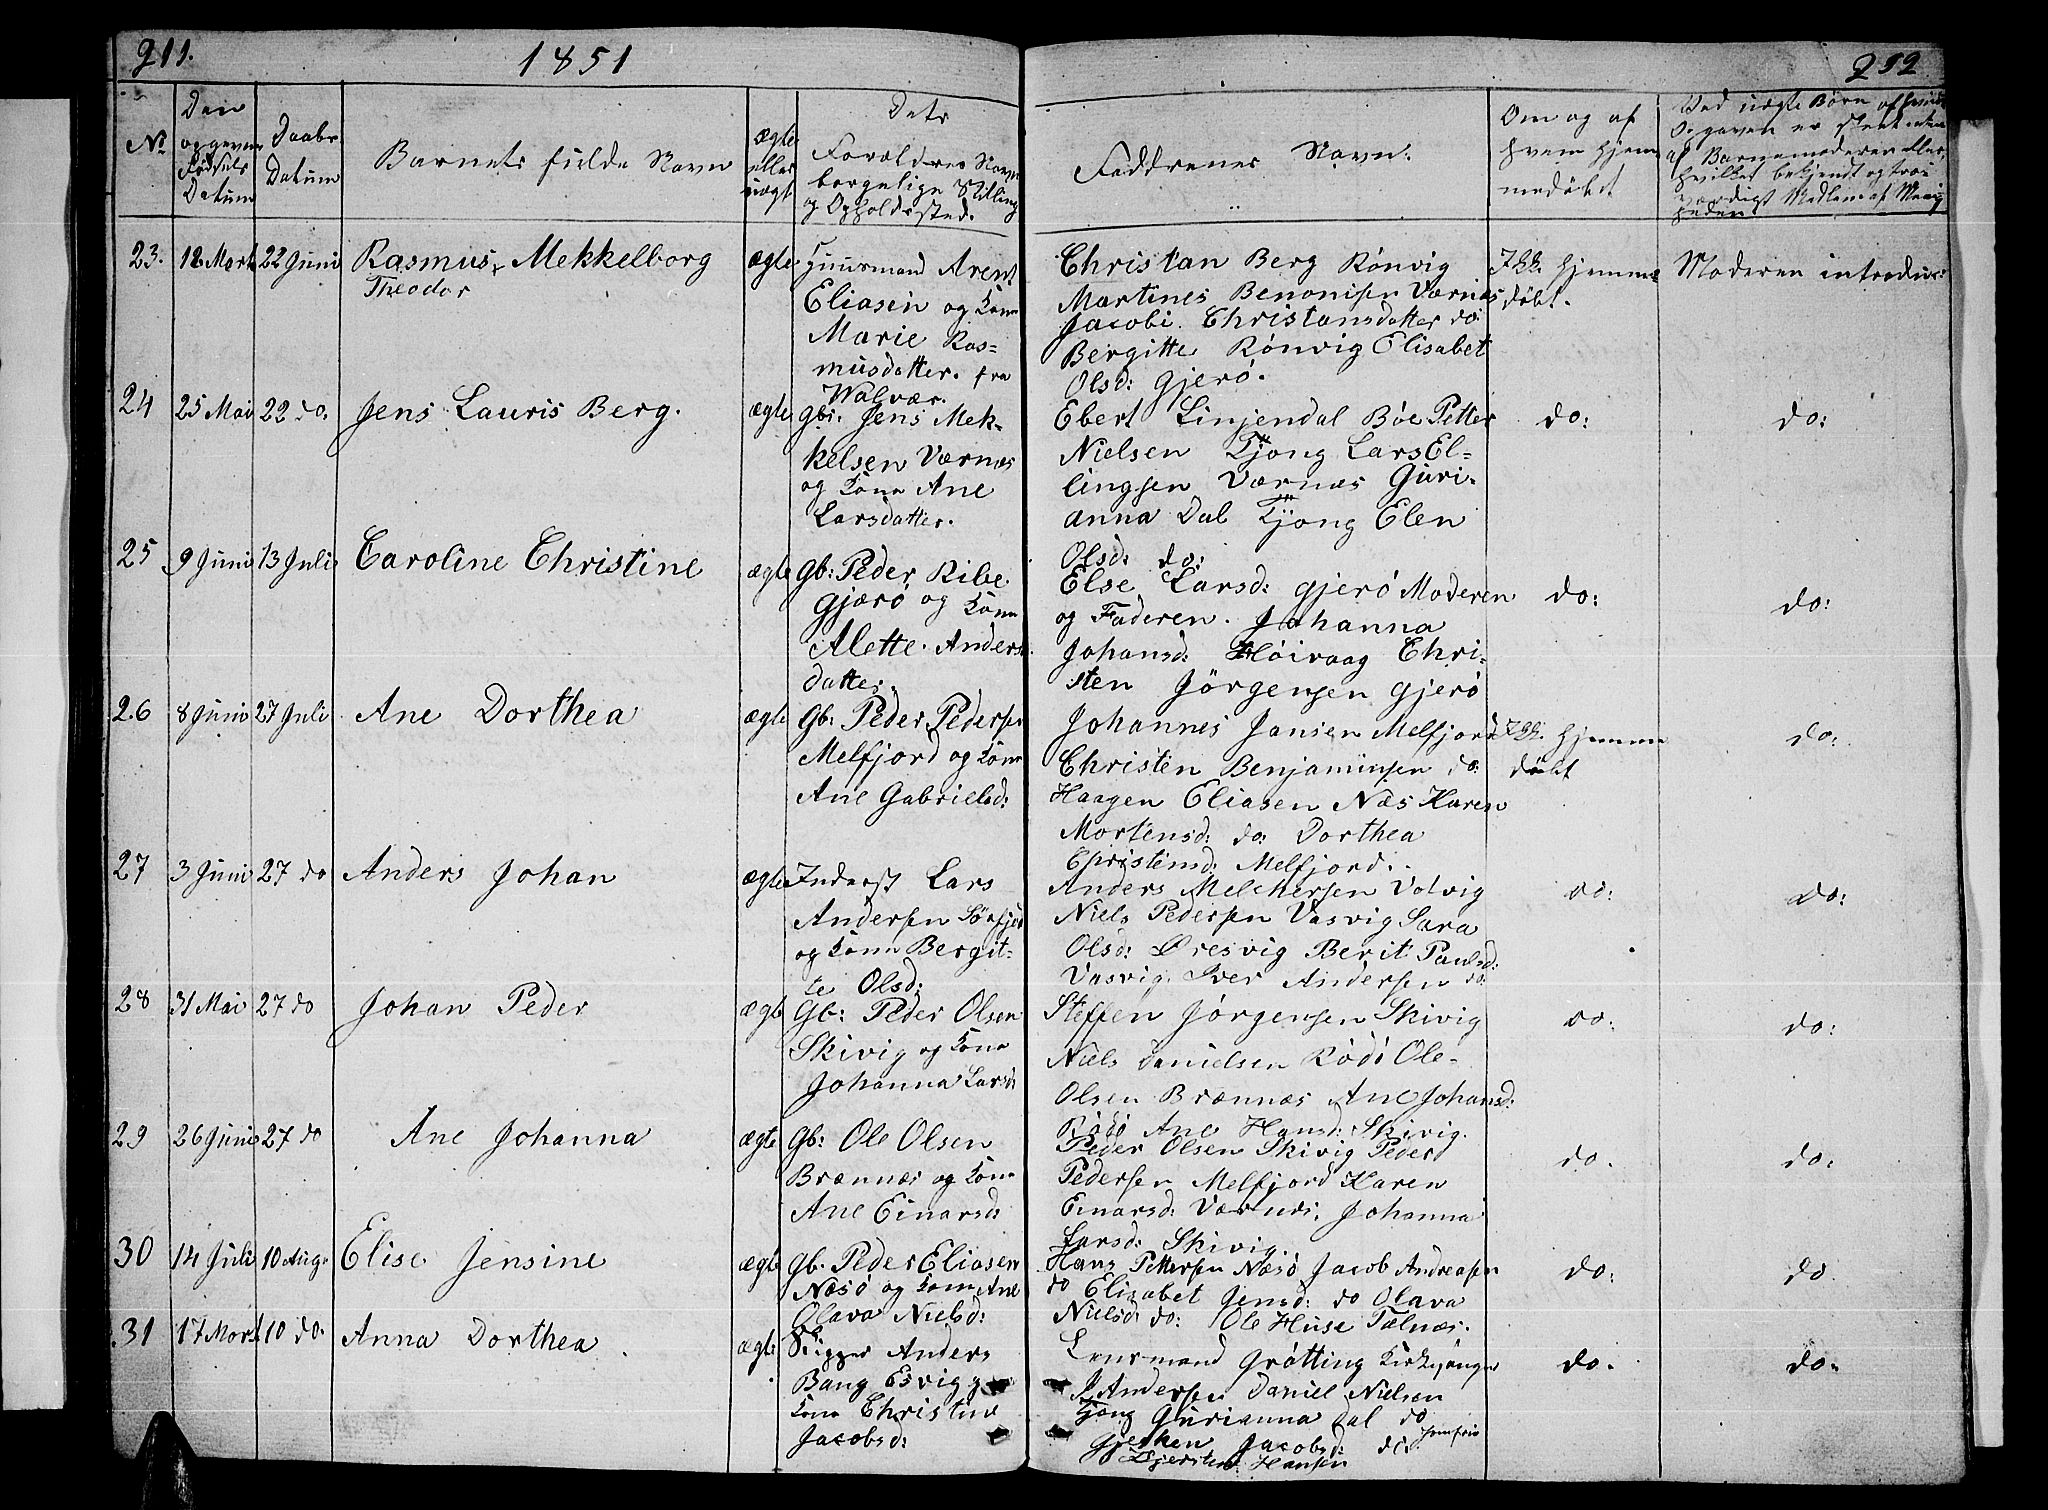 211.
1851
212
No
Den
opgevne
Fødsels
Datum
Daabs
Datum
Barnets fulde Navn
Ægte
eller
uægt.
Dets
Forældres Navn
borgelige Stilling
og Opholdssted.
Faddrenes Navn.
Om og af
hvem hjem
medøbt
af Barnemoderen eller
hvilket bekjendt og tro-
værdigt Medlem af Menig
heden
23.
18 Mart
22 Juni
Rasmus Mekkelborg
Theodor
ægte
Huusmand Arent
Eliasen og Kone
Marie Ras-
musdatter. fra
Walvær.
Christan Berg Rönvig
Martines Benonisen Værnæs
Jacobi. Christansdatter do:
Bergitte Rönvig Elisabet
Olsd: Gjerö.
Ikk. hjemme-
döbt.
Moderen introduc:
24
25 Mai
22 do.
Jens Lauris Berg.
ægte
Gbr. Jens Mek-
kelsen Værnæs
og Kone Ane
Larsdatter.
Ebert Linjendal Böe Petter
Nielsen Tjong Lars El-
lingsen Værnæs Guri-
anna Dal Tjong Elen
Olsd: do:
do:
do:
25
9 Juni
13 Juli
Caroline Christine
ægte
Gb: Peder Ribe
Gjærö og Kone
Alette Anders
datter.
Else Larsd: Gjerö Moderen
og Faderen. Johanna
Johansd: Höivaag Chri-
sten Jörgensen Gjerö
do:
do:
26
8 Juni
27 Juli
Ane Dorthea
ægte
Gb: Peder Pedersen
Melfjord og Kone
Ane Gabrielsd:
Johannes Jansen Melfjord
Christen Benjaminsen do:
Haagen Eliasen Næs Karen
Mortensd: do: Dorthea
Christensd: Melfjord.
Ikk. hjemme
döbt
do:
27
3 Juni
27 do
Anders Johan
ægte
Inderst Lars
Andersen Sörfjord
og Kone Bergit-
te Olsd:
Anders Melchersen Valvig
Niels Pedersen Vasvig Sara
Olsd: Øresvig Berit Paulsd:
Vasvig. Iver Andersen do:
do:
do:
28
31 Mai
27 do
Johan Peder
ægte
Gb: Peder Olsen
Skivig og Kone
Johanna Larsd:
Steffen Jörgensen Skivig
Niels Danielsen Rödö Ole-
Olsen Brænnæs Ane Johansd:
Rödö Ane Hansd: Skivig.
do:
do:
29
26 Juni
27 do
Ane Johanna
ægte
Gb: Ole Olsen
Brænnæs og Kone
Ane Einarsd:
Peder Olsen Skivig Peder
Pedersen Melfjord Karen
Einarsd: Værnæs. Johanna
Larsd: Skivig
do.
do:
30
14 Juli
10 Aug.
Elise Jensine
ægte
Gb. Peder Eliasen
Næsö og Kone Ane
Olava Nielsd:
Hans Pettersen Næsö Jacob Andreasen
do Elisabet Jensd: do Olava
Nielsd: do: Ole Huse Tælnæs.
do:
do
31
17 Mart
10 do.
Anna Dorthea
ægte
Anders
Bang Esvig
Kone Christine
Jacobsd:
Lensmand Grötting Kirkesanger
J. Andersen Daniel Nielsen
Tjong Gurianna Dal do
Jacobsd: do.
Hansen
do.
do.